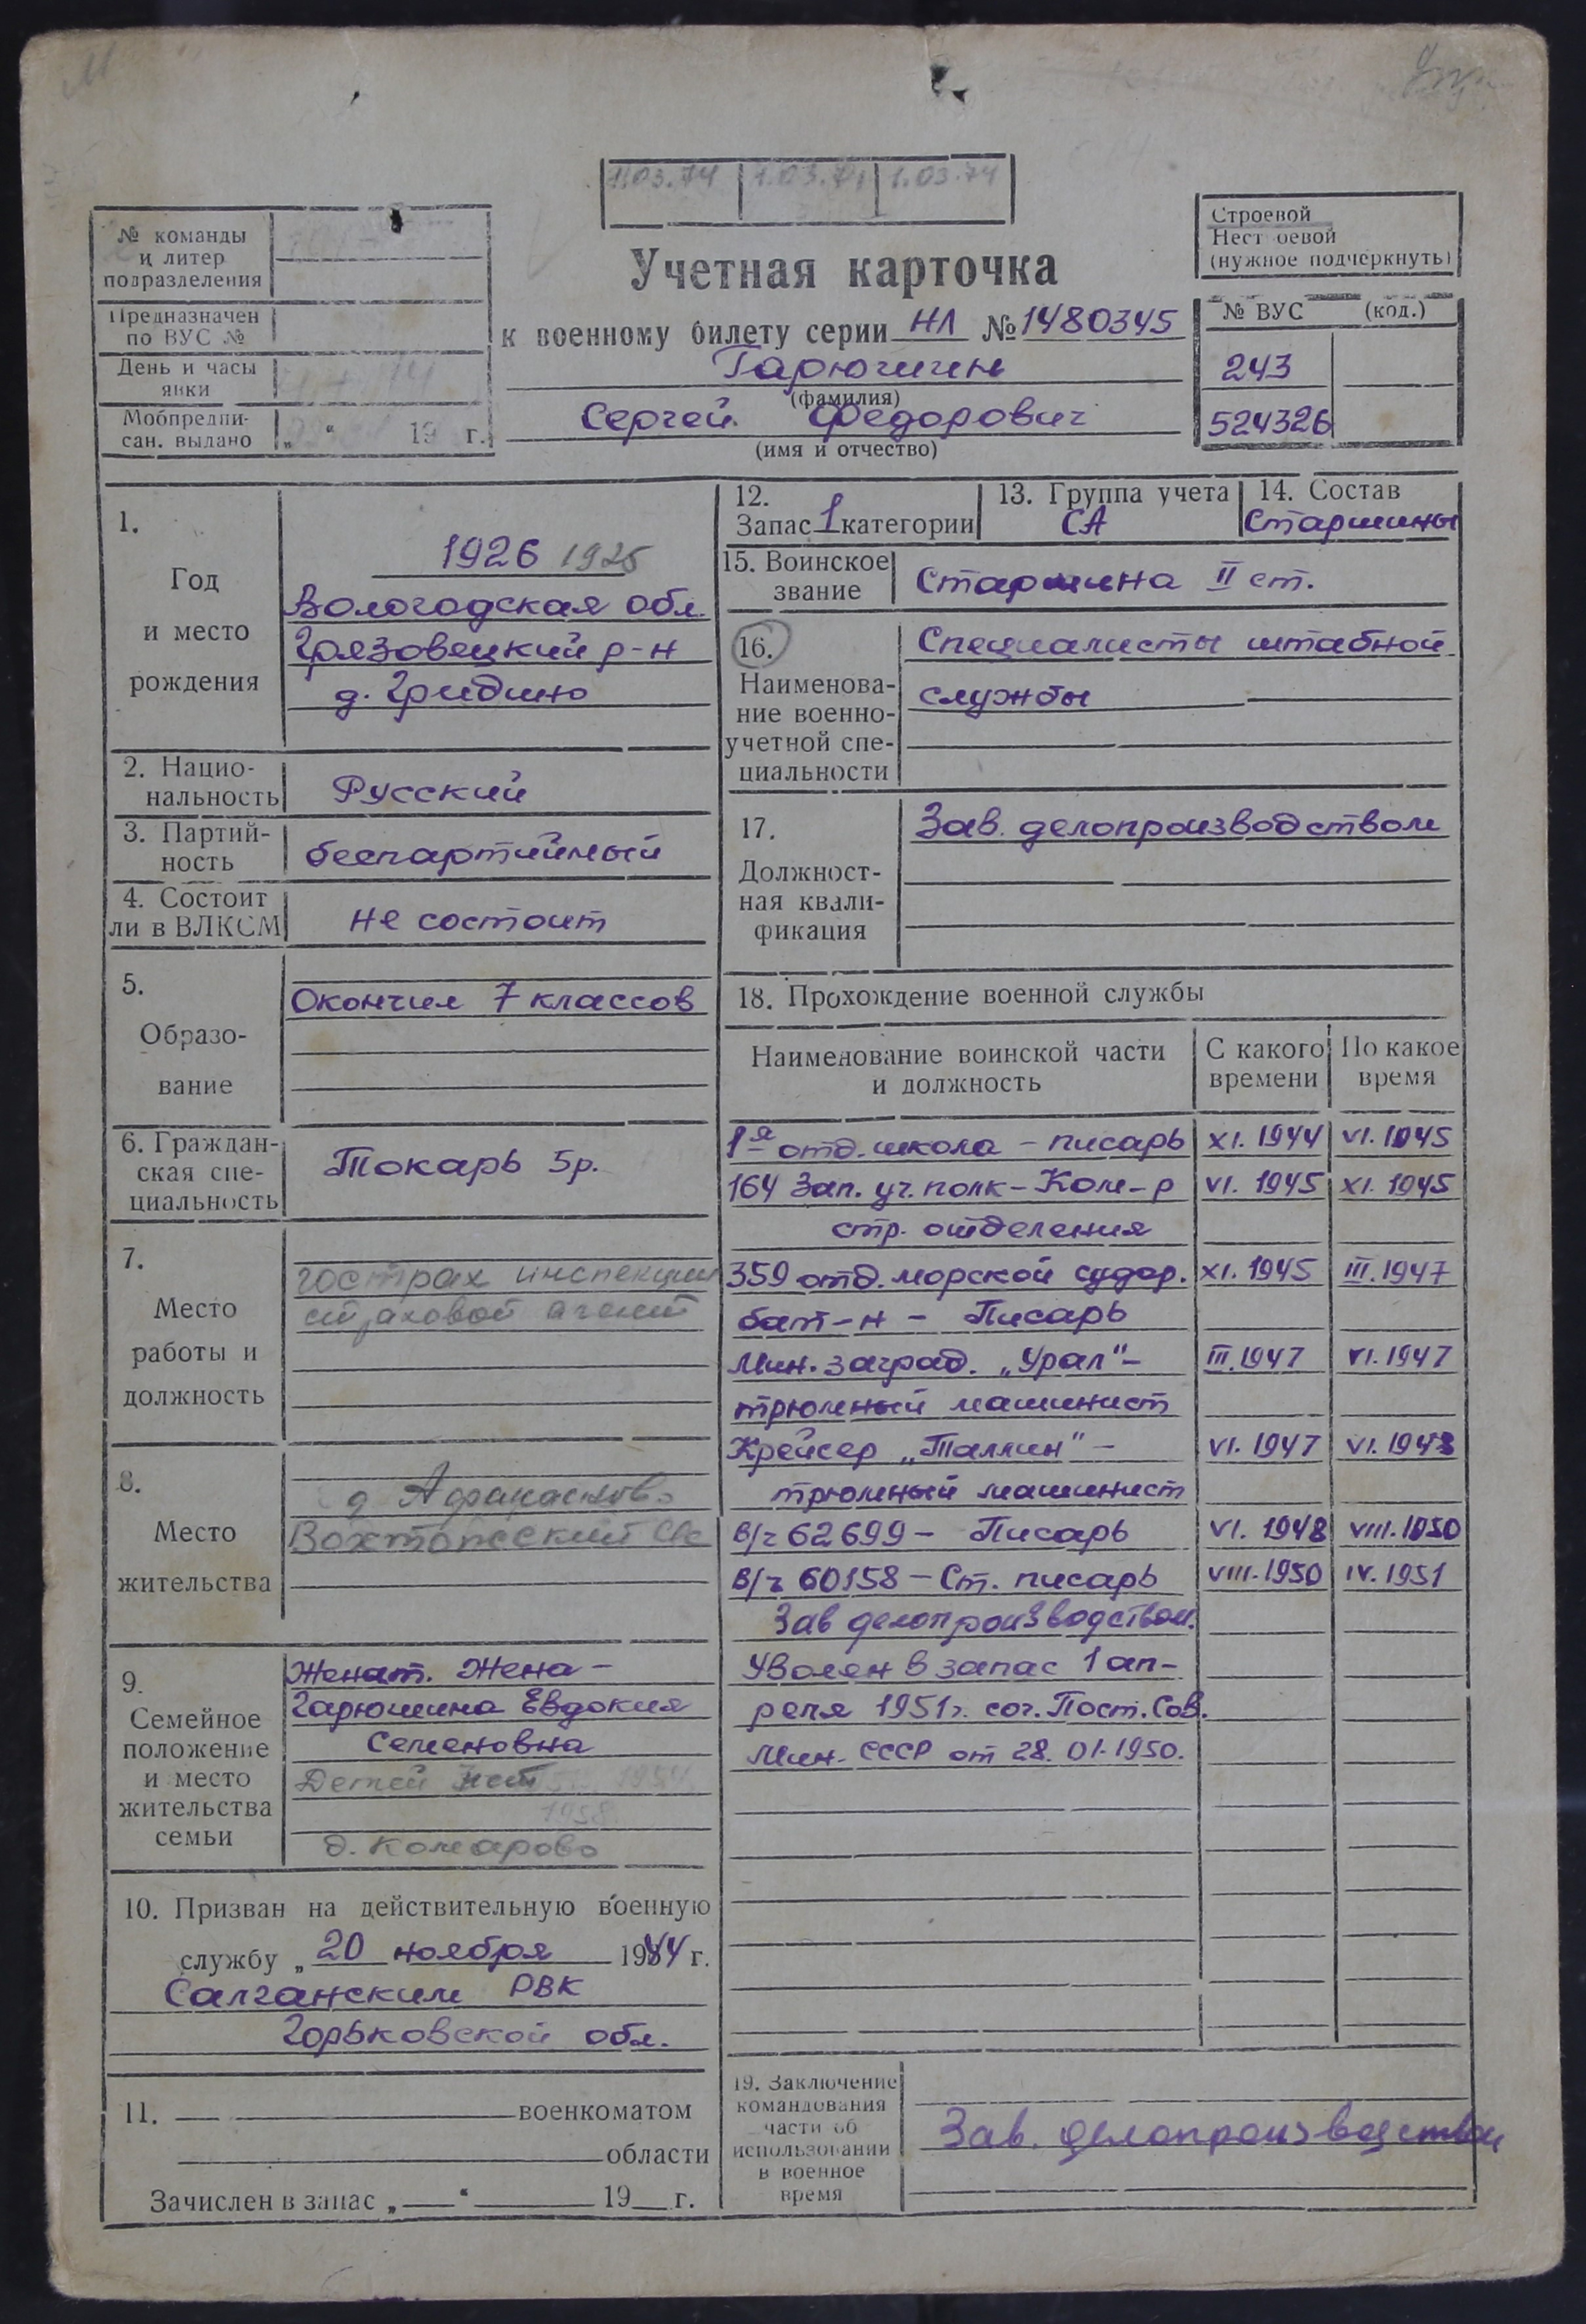 1.03.74 1.03.74 1.03.74
№ команды
и литер
подразделения
Предназначен
по ВУС №
День и часы
явки
Мобпредпи-
сан. выдано „ “ 19 г.
Строевой
Нестроевой
(нужное подчеркнуть)
Учетная карточка
к военному билету серии НЛ № 1480345
Гарючигин
(фамилия)
Сергей Федорович
(имя и отчество)
№ ВУС (код.)
243
524326
1.
Год
и место
рождения
1926 1925
Вологодская обл.
Грязовецкий р-н
д. Гридино
2. Нацио-
нальность
Русский
3. Партий-
ность
беспартийный
4. Состоит
ли в ВЛКСМ
не состоит
5.
Образо-
вание
Окончил 7 классов
6. Граждан-
ская спе-
циальность
Токарь 5р.
7.
Место
работы и
должность
гострах инспекции
страховой агент
8.
Место
жительства
д.
9.
Семейное
положение
и место
жительства
семьи
Женат. Жена –
Гарюшина Евдокия
Семеновна
Детей нет 1954
1958
д. Комарово
10. Призван на действительную военную
службу „ 20 ноября 1944 г.
Салганским РВК
Горьковской обл.
11. военкоматом
области
Зачислен в запас „ “ 19 г.
12.
Запас 1 категории
13. Группа учета
СА
14. Состав
Старшины
15. Воинское
звание
Старшина II ст.
16.
Наименова-
ние военно-
учетной спе-
циальности
Специалисты штабной
службы
17.
Должност-
ная квали-
фикация
Зав. делопроизводством
18. Прохождение военной службы
Наименование воинской части
и должность
С какого
времени
По какое
время
1-я отд. школа – писарь XI. 1944 VI. 1945
164 Зап. уч. полк – Ком-р VI. 1945 XI. 1945
стр. отделения
359 отд. морской судор. XI. 1945 III. 1947
бат-н – Писарь
Мин. заград. „Урал“– III. 1947 VI. 1947
трюмный машинист
Крейсер „Таллин“ – VI. 1947 VI. 1948
трюмный машинист
в/ч 62699 – Писарь VI. 1948 VIII. 1950
в/ч 60158 – Ст. писарь VIII. 1950 IV. 1951
Зав делопроизводством.
Уволен в запас 1 ап-
реля 1951г. сог. Пост. Сов.
Мин. СССР от 28. 01. 1950.
19. Заключение
командования
части об
использовании
в военное
время
Зав. делопроизводством